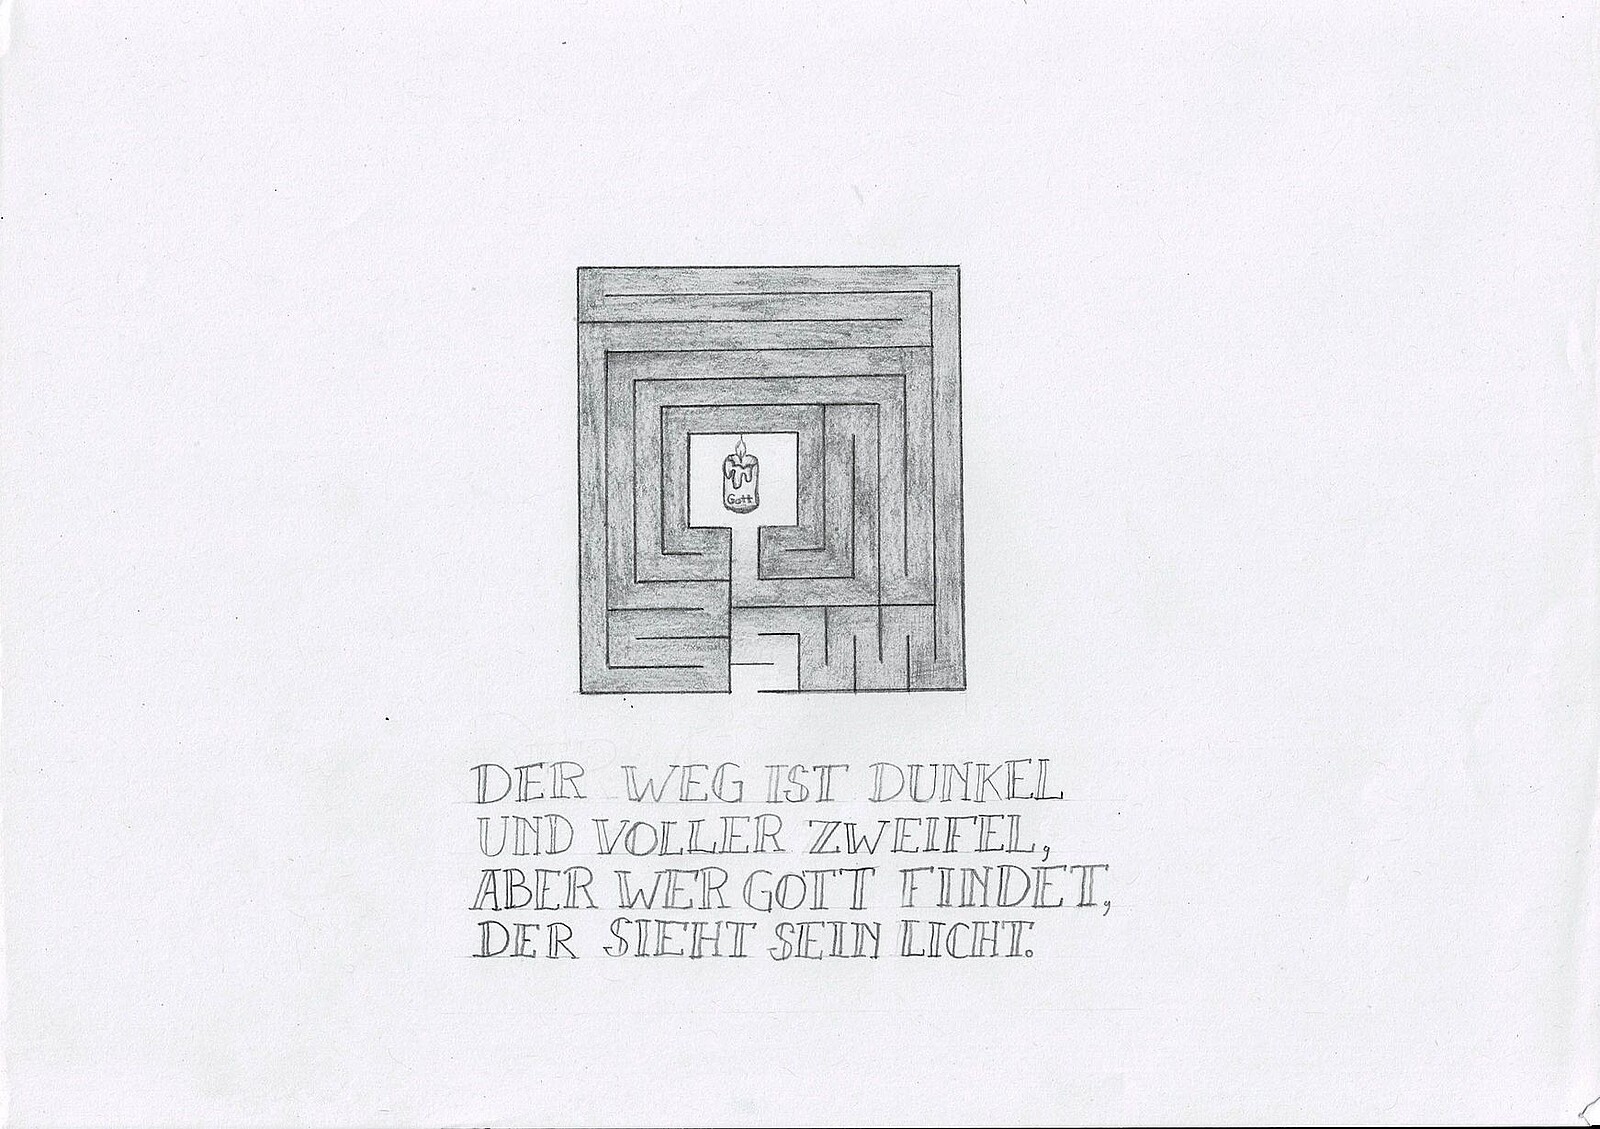 Gott
DER WEG IST DUNKEL
UND VOLLER ZWEIFEL,
ABER WER GOTT FINDET,
DER SIEHT SEIN LICHT.